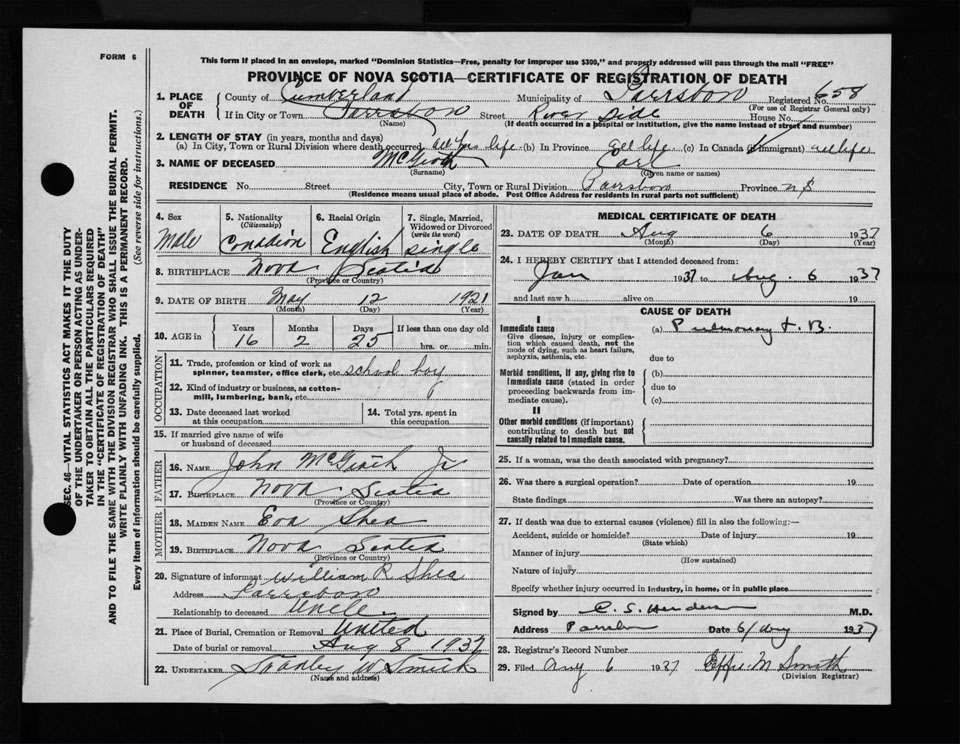 FORM 6
This form if placed in an envelope, marked "Dominion Statistics—Free, penalty for improper use $300," and properly addressed will pass through the mail "FREE"
PROVINCE OF NOVA SCOTIA—CERTIFICATE OF REGISTRATION OF DEATH
1. PLACE OF DEATH County of Cumberland Municipality of Parrsboro Registered No. 658
(For use of Registrar General only)
If in City or Town Parrsboro Street River Side House No.
(Name) (If death occurred in a hospital or institution, give the name instead of street and number)
2. LENGTH OF STAY (in years, months and days)
(a) In City, Town or Rural Division where death occurred all his life (b) In Province all life (c) In Canada (if immigrant) all life
3. NAME OF DECEASED Earl
(Surname) (Given name or names)
RESIDENCE No. Street City, Town or Rural Division Parrsboro Province N S
(Residence means usual place of abode. Post Office Address for residents in rural parts not sufficient)
SEC. 46—VITAL STATISTICS ACT MAKES IT THE DUTY
OF THE UNDERTAKER OR PERSON ACTING AS UNDER-
TAKER TO OBTAIN ALL THE PARTICULARS REQUIRED
IN THE "CERTIFICATE OF REGISTRATION OF DEATH"
AND TO FILE THE SAME WITH THE DIVISION REGISTRAR WHO SHALL ISSUE THE BURIAL PERMIT.
WRITE PLAINLY WITH UNFADING INK. THIS IS A PERMANENT RECORD.
Every item of information should be carefully supplied. (See reverse side for instructions.)
4. Sex Male
5. Nationality (Citizenship) Canadian
6. Racial Origin English
7. Single, Married, Widowed or Divorced (write the word) single
8. BIRTHPLACE Nova Scotia
(Province or Country)
9. DATE OF BIRTH May 12 1921
(Month) (Day) (Year)
10. AGE in Years 16 Months 2 Days 25 If less than one day old hrs. or min.
OCCUPATION
11. Trade, profession or kind of work as spinner, teamster, office clerk, etc. school boy
12. Kind of industry or business, as cotton-mill, lumbering, bank, etc.
13. Date deceased last worked at this occupation
14. Total yrs. spent in this occupation
15. If married give name of wife or husband of deceased
FATHER
16. NAME John Jr
17. BIRTHPLACE Nova Scotia
(Province or Country)
MOTHER
18. MAIDEN NAME Eva Shea
19. BIRTHPLACE Nova Scotia
(Province or Country)
20. Signature of informant William R. Shea
Address Parrsboro
Relationship to deceased Uncle
21. Place of Burial, Cremation or Removal United
Date of burial or removal Aug 8 1937
22. UNDERTAKER Stanley W Smith
(Name and address)
MEDICAL CERTIFICATE OF DEATH
23. DATE OF DEATH Aug 6 1937
(Month) (Day) (Year)
24. I HEREBY CERTIFY that I attended deceased from:
Jan 1937 to Aug. 6 1937
and last saw h alive on 19
CAUSE OF DEATH
I
Immediate cause (a) Pulmonary T. B.
Give disease, injury or complication which caused death, not the mode of dying, such as heart failure, asphyxia, asthenia, etc.
due to
Morbid conditions, if any, giving rise to immediate cause (stated in order proceeding backwards from immediate cause).
(b)
due to
(c)
II
Other morbid conditions (if important) contributing to death but not causally related to immediate cause.
25. If a woman, was the death associated with pregnancy?
26. Was there a surgical operation? Date of operation 19
State findings Was there an autopsy?
27. If death was due to external causes (violence) fill in also the following:—
Accident, suicide or homicide? Date of injury 19
(State which)
Manner of injury
(How sustained)
Nature of injury
Specify whether injury occurred in Industry, in home, or in public place
Signed by C. S. M.D.
Address Date 6/Aug 1937
28. Registrar's Record Number
29. Filed Aug 6 1937 Effie M Smith
(Division Registrar)